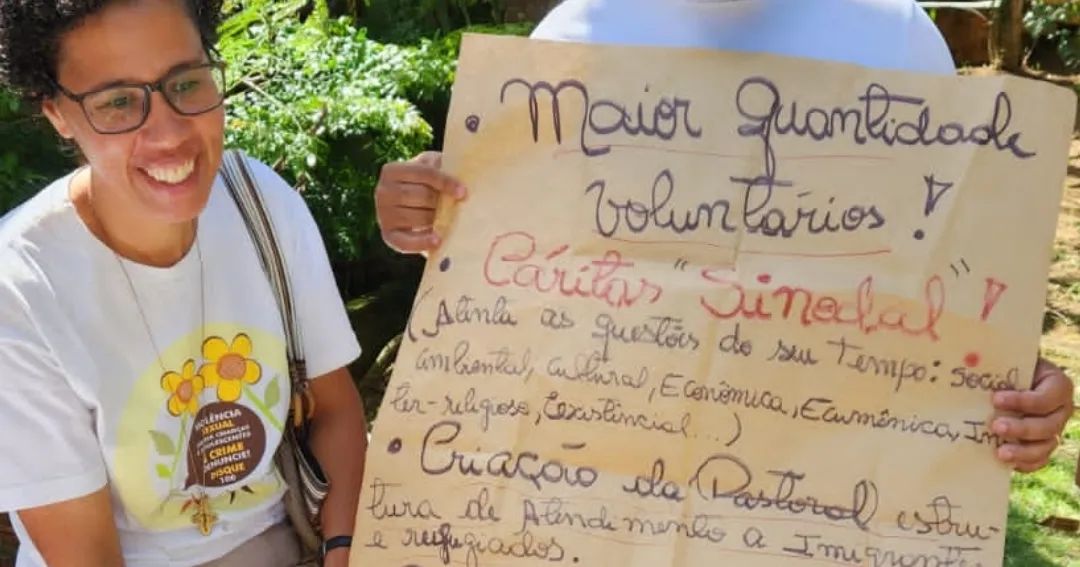 • Maior Quantidade
Voluntários!
• Cáritas "Sinodal"!
(Atenta as questões do seu tempo: Social
ambiental, cultural, Econômica, Ecumênica, In
ter-religioso, Existincial...)
• Criação da (Pastoral) estru-
tura de Atendimento a Imigrante
e refugiados.
VIOLÊNCIA
SEXUAL
CONTRA CRIANÇAS
E ADOLESCENTES
É CRIME
DENUNCIE!
DISQUE
100